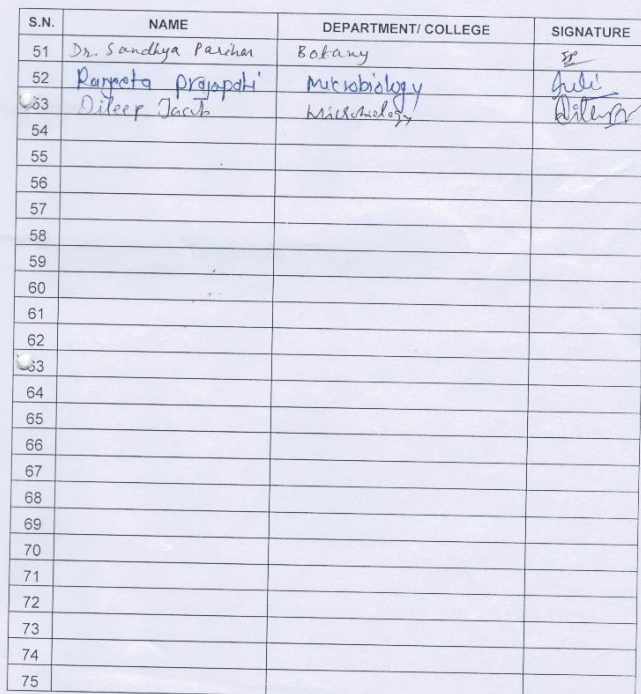 S.N. NAME DEPARTMENT/ COLLEGE SIGNATURE
51 Dr. Sandhya Parihar Botany SP
52 Ranjeeta Prajapati Microbiology Juli
53 Dileep Jacob Microbiology Dileep
54
55
56
57
58
59
60
61
62
63
64
65
66
67
68
69
70
71
72
73
74
75